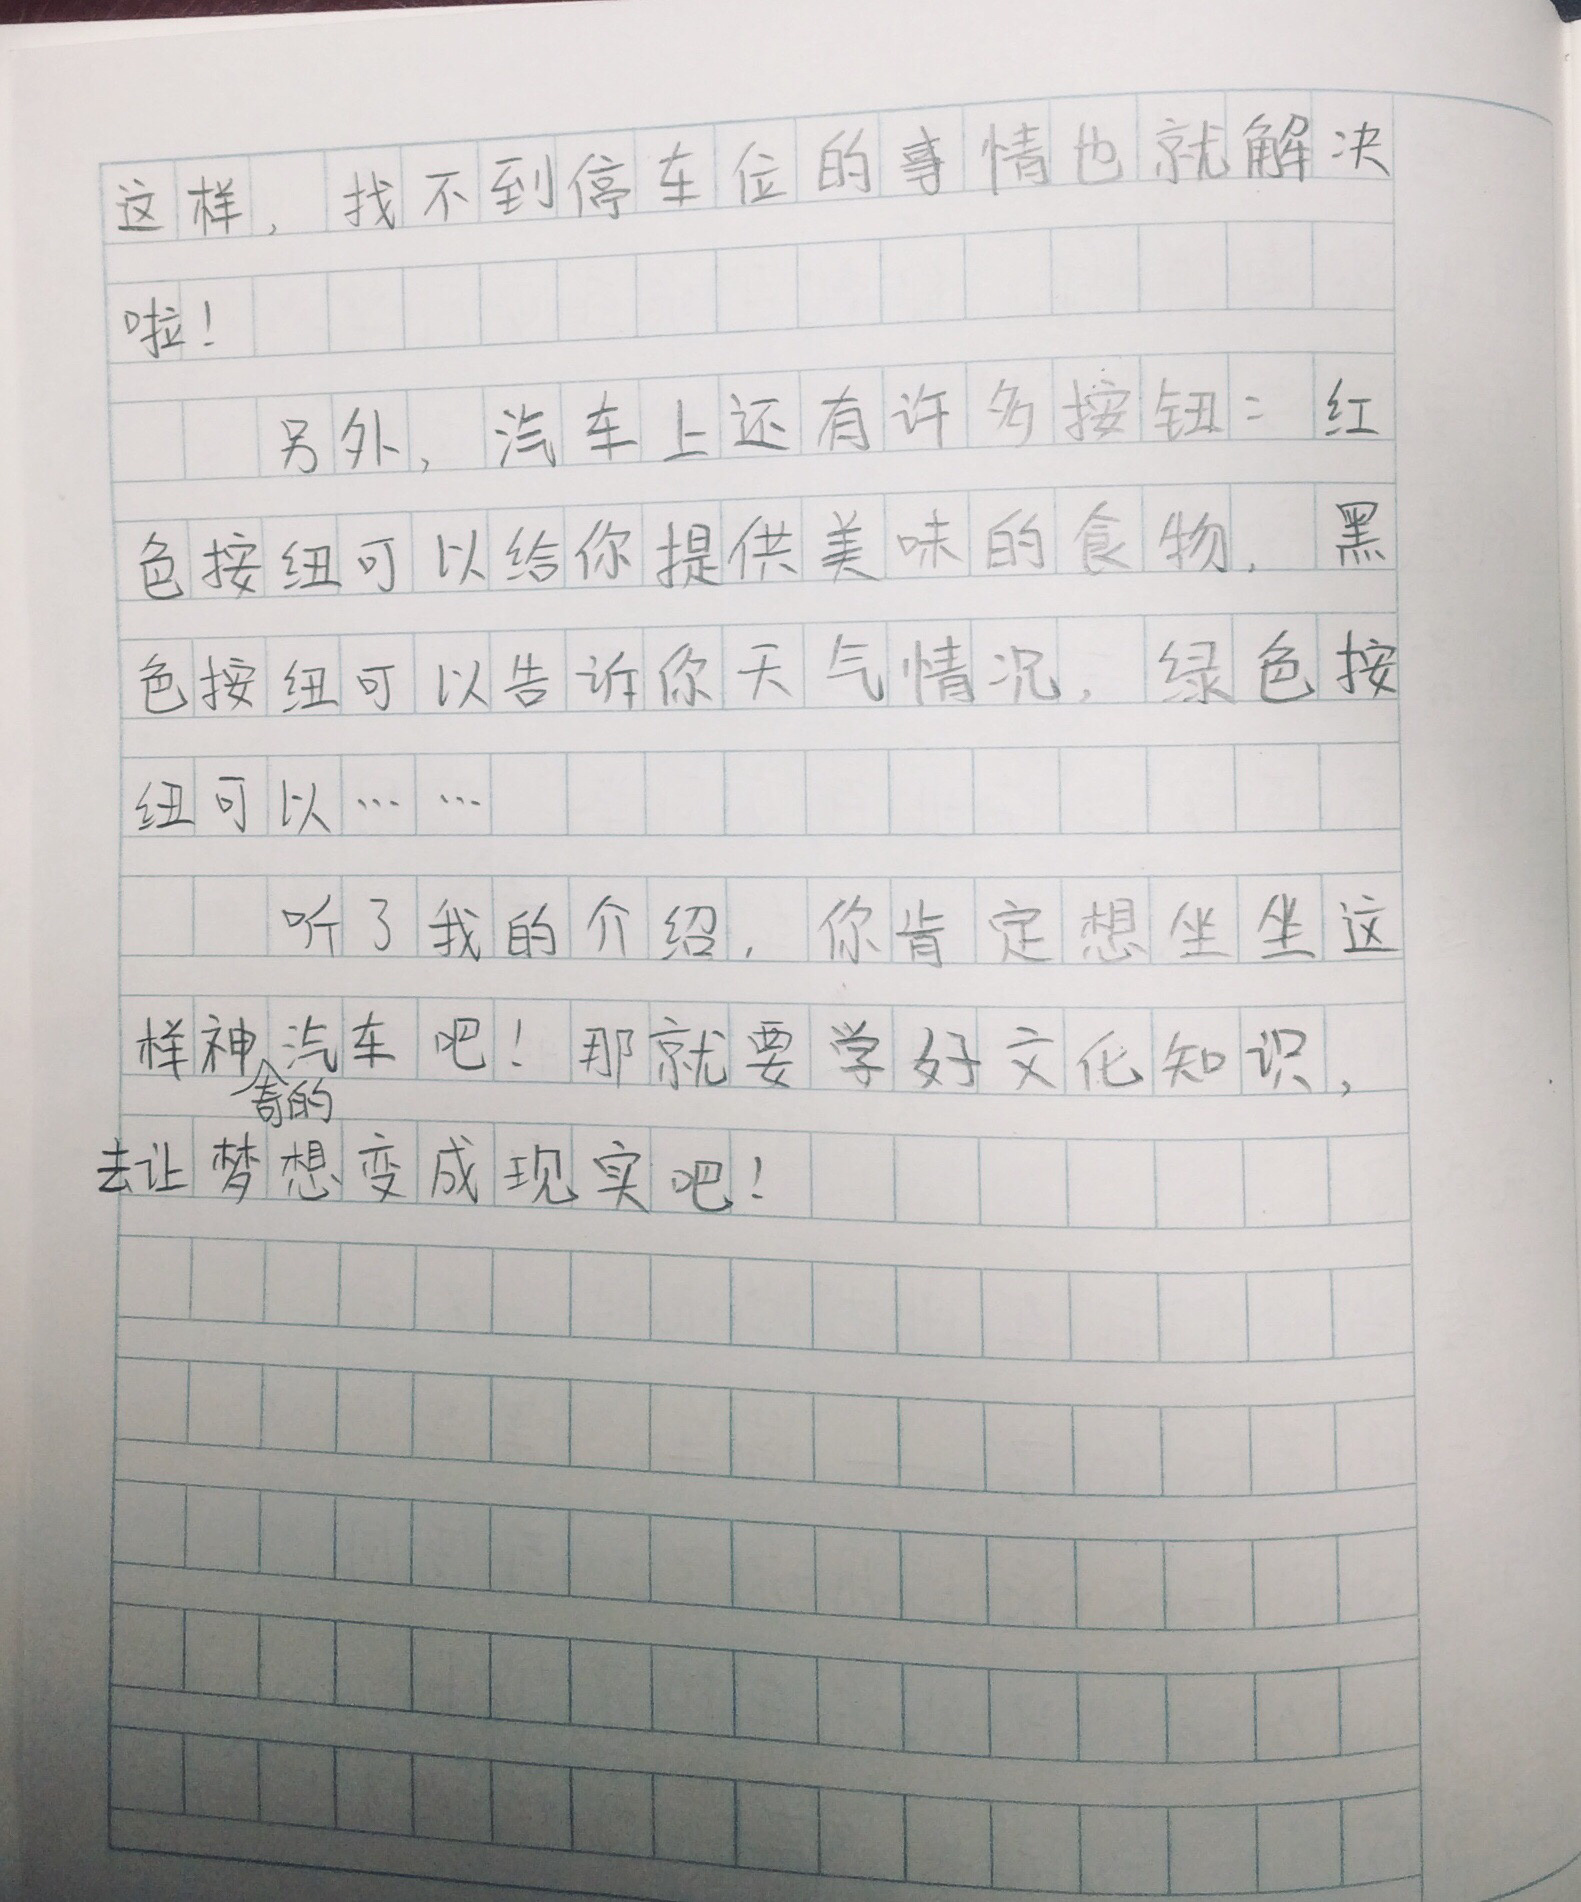 这样，找不到停车位的事情也就解决
啦！
另外，汽车上还有许多按钮：红
色按纽可以给你提供美味的食物，黑
色按纽可以告诉你天气情况，绿色按
纽可以……
听了我的介绍，你肯定想坐坐这
样神奇的汽车吧！那就要学好文化知识，
去让梦想变成现实吧！